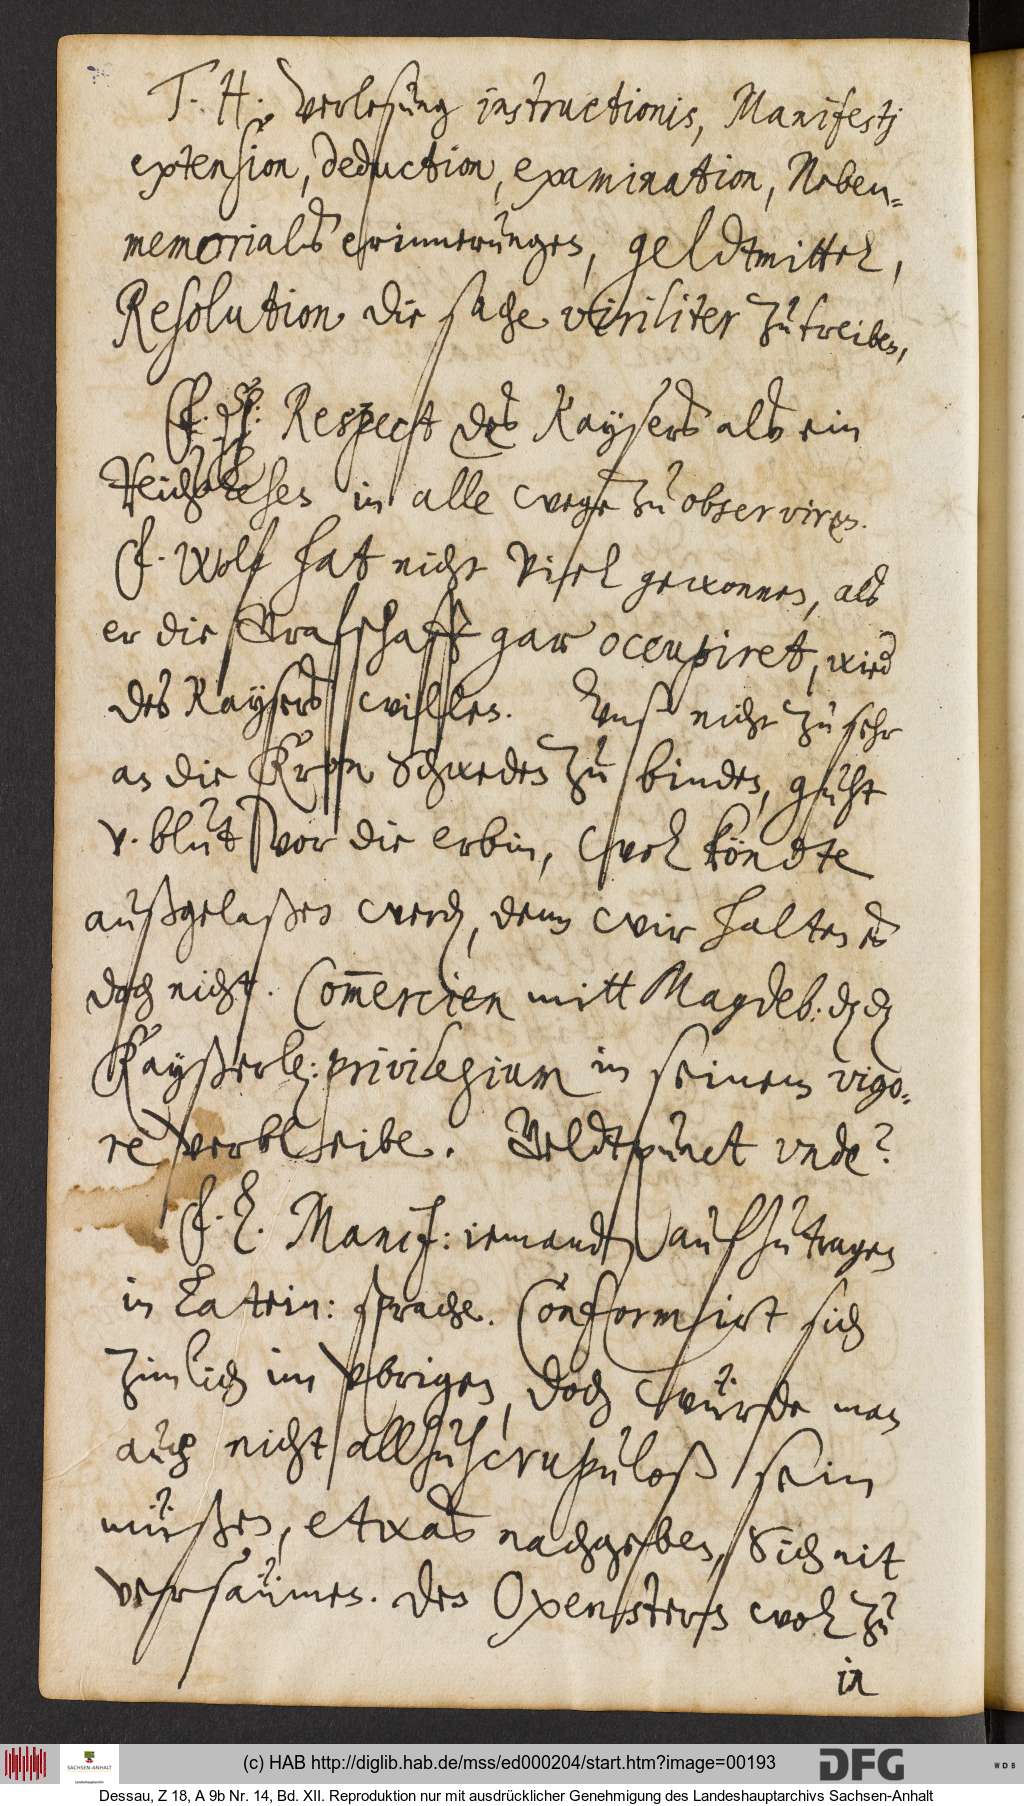 T. H. verlesung instructionis, Manifestj
extension, deduction, examination, Neben-
memorials erinnerungen, geldtmittel,
Resolution die sache viriliter zu treiben,
Respect des Kaysers als ein
Reichslehen in alle wege zu observiren.
F. Wolf hat nicht viel gewonnen, als
er die Grafschafft gar occupiret, wied
des Kaysers willen. Unß nicht zu sehr
an die Kron Schweden zu binden, guht
v. blut vor die erbin, wol köndte
außgelaßen werden, denn wir halten es
doch nicht. Com̄ercien mitt Magdeb: dz dz
Kayßerl: privilegium in seinem vigo-
re verbleibe. Geldtpunct unde?
F. L. Manif: iemandt aufzutragen
in Latein: sprache. Conformirt sich
zimlich im vbrigen, doch würde man
auch nicht allzuscrupuloß sein
müßen, etwas nachgeben, Sich nit
versäumen. Den Oxenstern wol zu
in
(c) HAB http://diglib.hab.de/mss/ed000204/start.htm?image=00193
SACHSEN-ANHALT
Landeshauptarchiv
DFG
WDB
Dessau, Z 18, A 9b Nr. 14, Bd. XII. Reproduktion nur mit ausdrücklicher Genehmigung des Landeshauptarchivs Sachsen-Anhalt